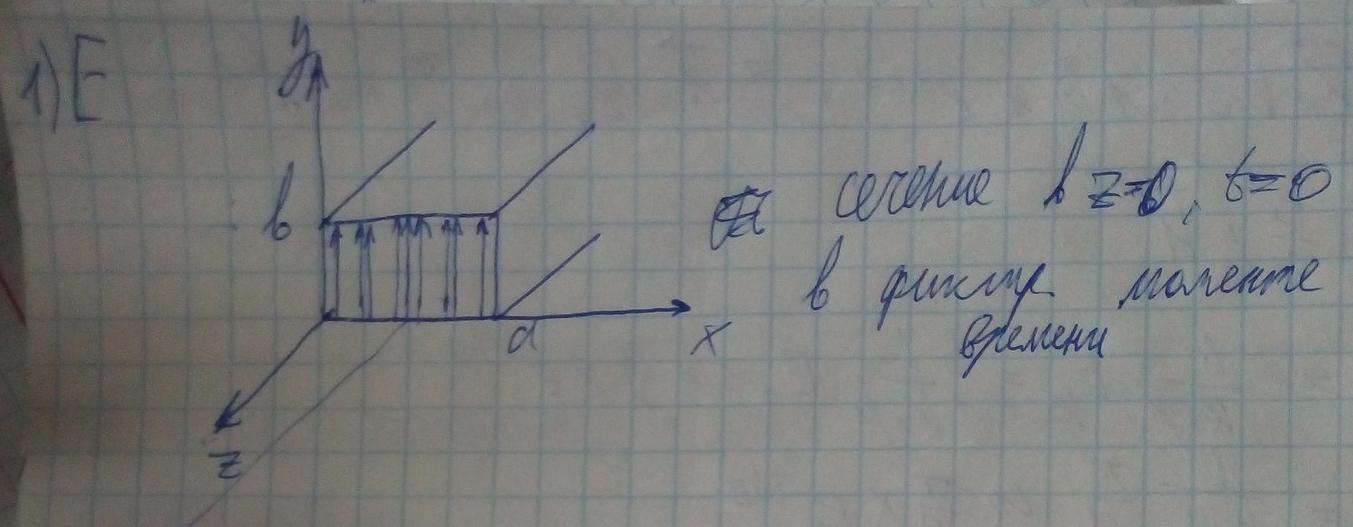 1) E
y
b
сечение в z=0, t=0
в фиксир моменте
времени
a
x
z